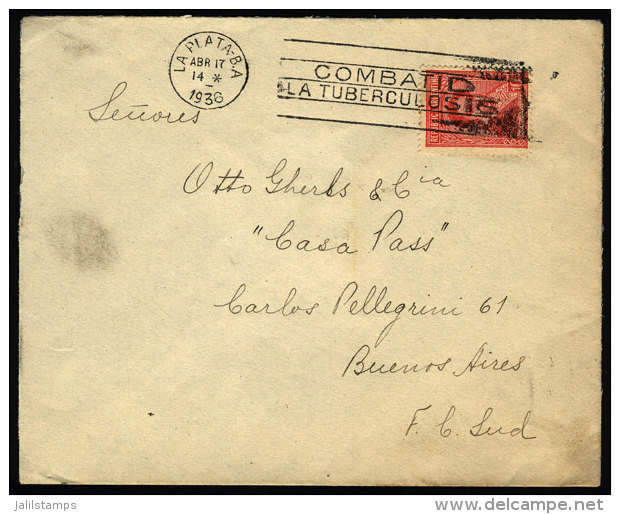 LA PLATA-B.A
ABR 17
14 *
1936
COMBATID
LA TUBERCULOSIS
Señores
Otto Gherls & Cia
"Casa Pass"
Carlos Pellegrini 61
Buenos Aires
F. C. Sud
jalilstamps
delcampe.net